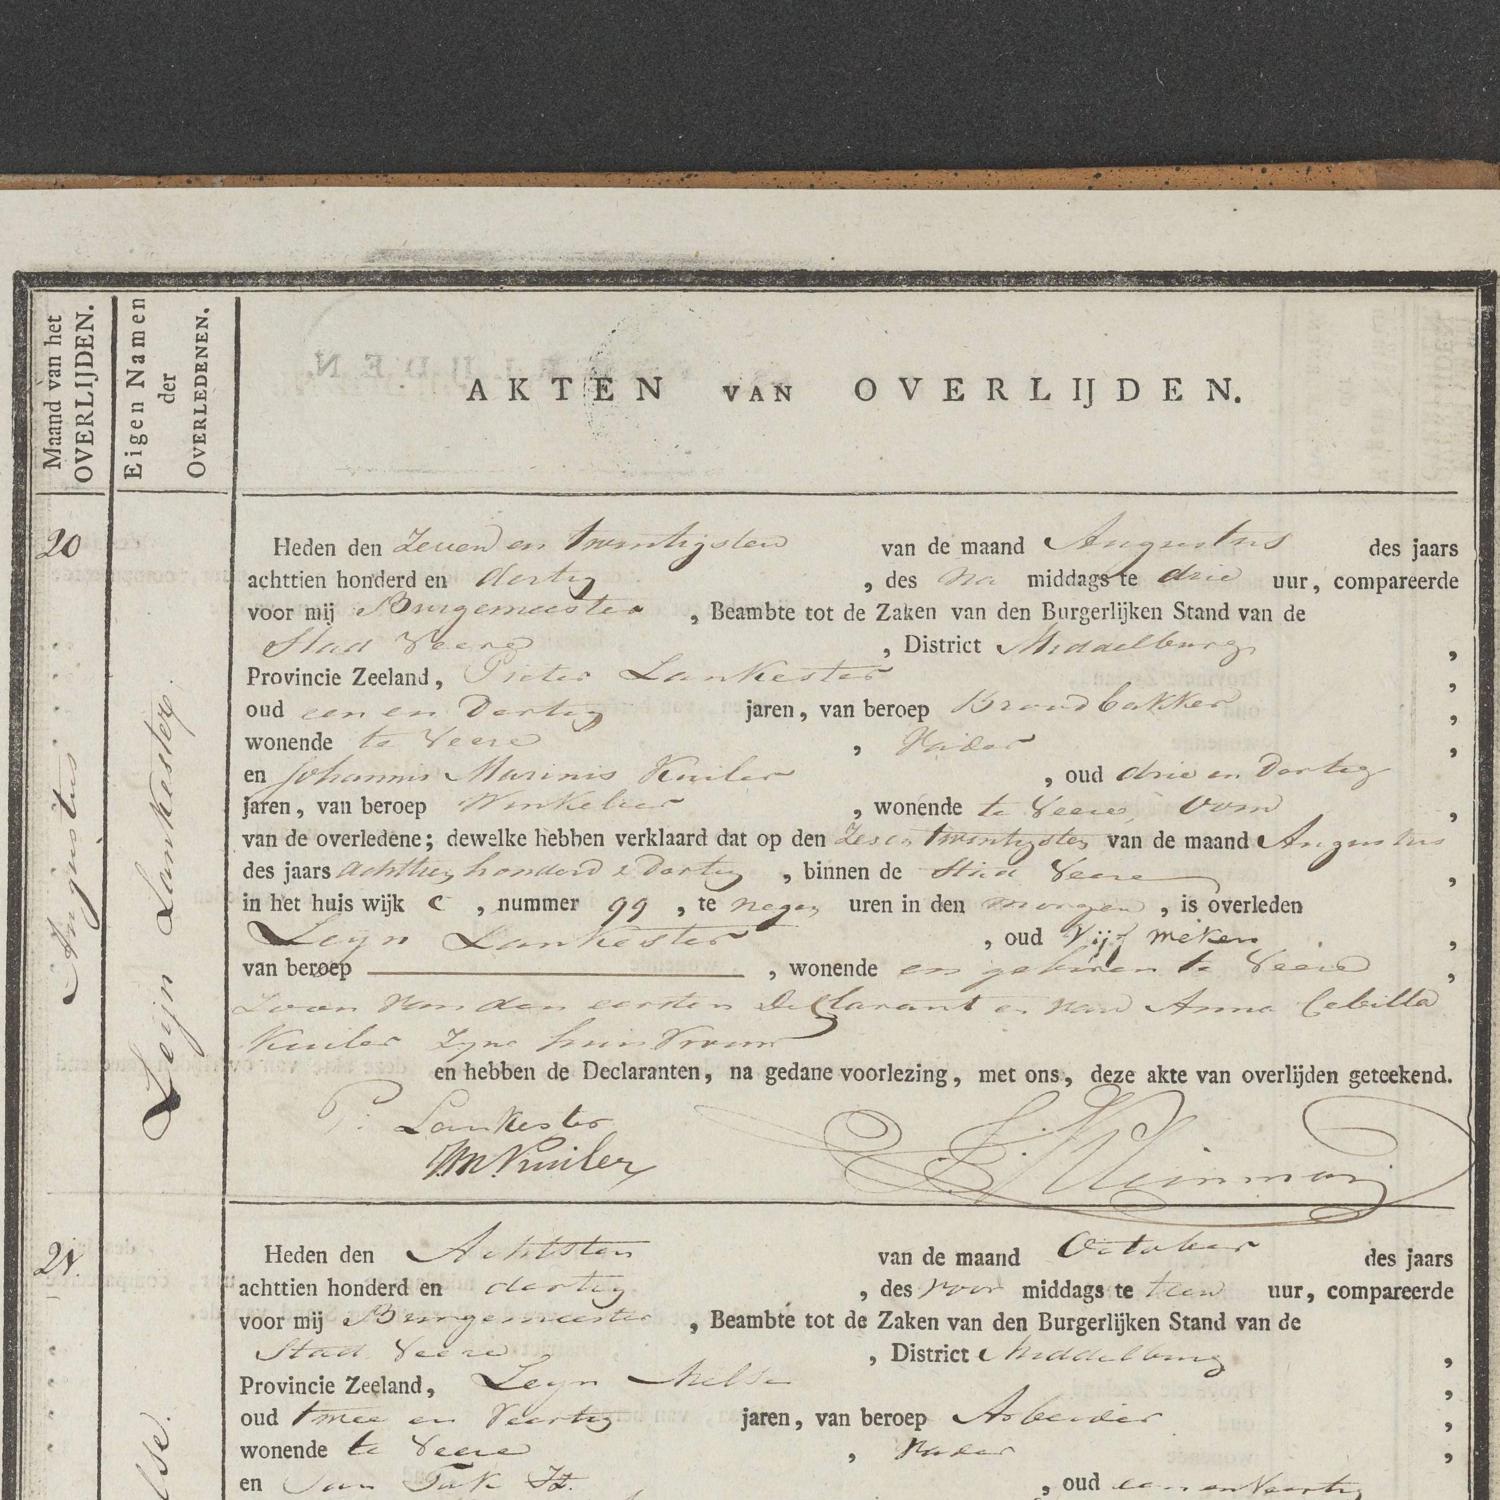 Maand van het
OVERLIJDEN.
Eigen Namen
der
OVERLEDENEN.
AKTEN VAN OVERLIJDEN.
20
Augustus
Leijn Lankester.
Heden den Zeven en twintigsten van de maand Augustus des jaars
achttien honderd en dertig , des na middags te drie uur, compareerde
voor mij Burgemeester , Beambte tot de Zaken van den Burgerlijken Stand van de
Stad Veere , District Middelburg ,
Provincie Zeeland, Pieter Lankester ,
oud een en Dertig jaren, van beroep Broodbakker ,
wonende te Veere , Vader ,
en Johannis Marinis Kuiler , oud drie en Dertig
jaren, van beroep Winkelier , wonende te Veere, Oom ,
van de overledene; dewelke hebben verklaard dat op den Zes en twintigsten van de maand Augustus
des jaars achttien honderd & Dertig , binnen de Stad Veere ,
in het huis wijk C , nummer 99 , te negen uren in den morgen , is overleden
Leyn Lankester , oud Vijf weken ,
van beroep , wonende en geboren te Veere ,
Zoon van den eersten Declarant en van Anna Cebilla
Kuiler Zyne huisvrouw
en hebben de Declaranten, na gedane voorlezing, met ons, deze akte van overlijden geteekend.
P. Lankester
JM Kuiler
21.
Heden den Achtsten van de maand October des jaars
achttien honderd en dertig , des voor middags te tien uur, compareerde
voor mij Burgemeester , Beambte tot de Zaken van den Burgerlijken Stand van de
Stad Veere , District Middelburg ,
Provincie Zeeland, Leyn Melse ,
oud twee en Veertig jaren, van beroep Arbeider ,
wonende te Veere , Vader ,
en Jan , oud een en Veertig